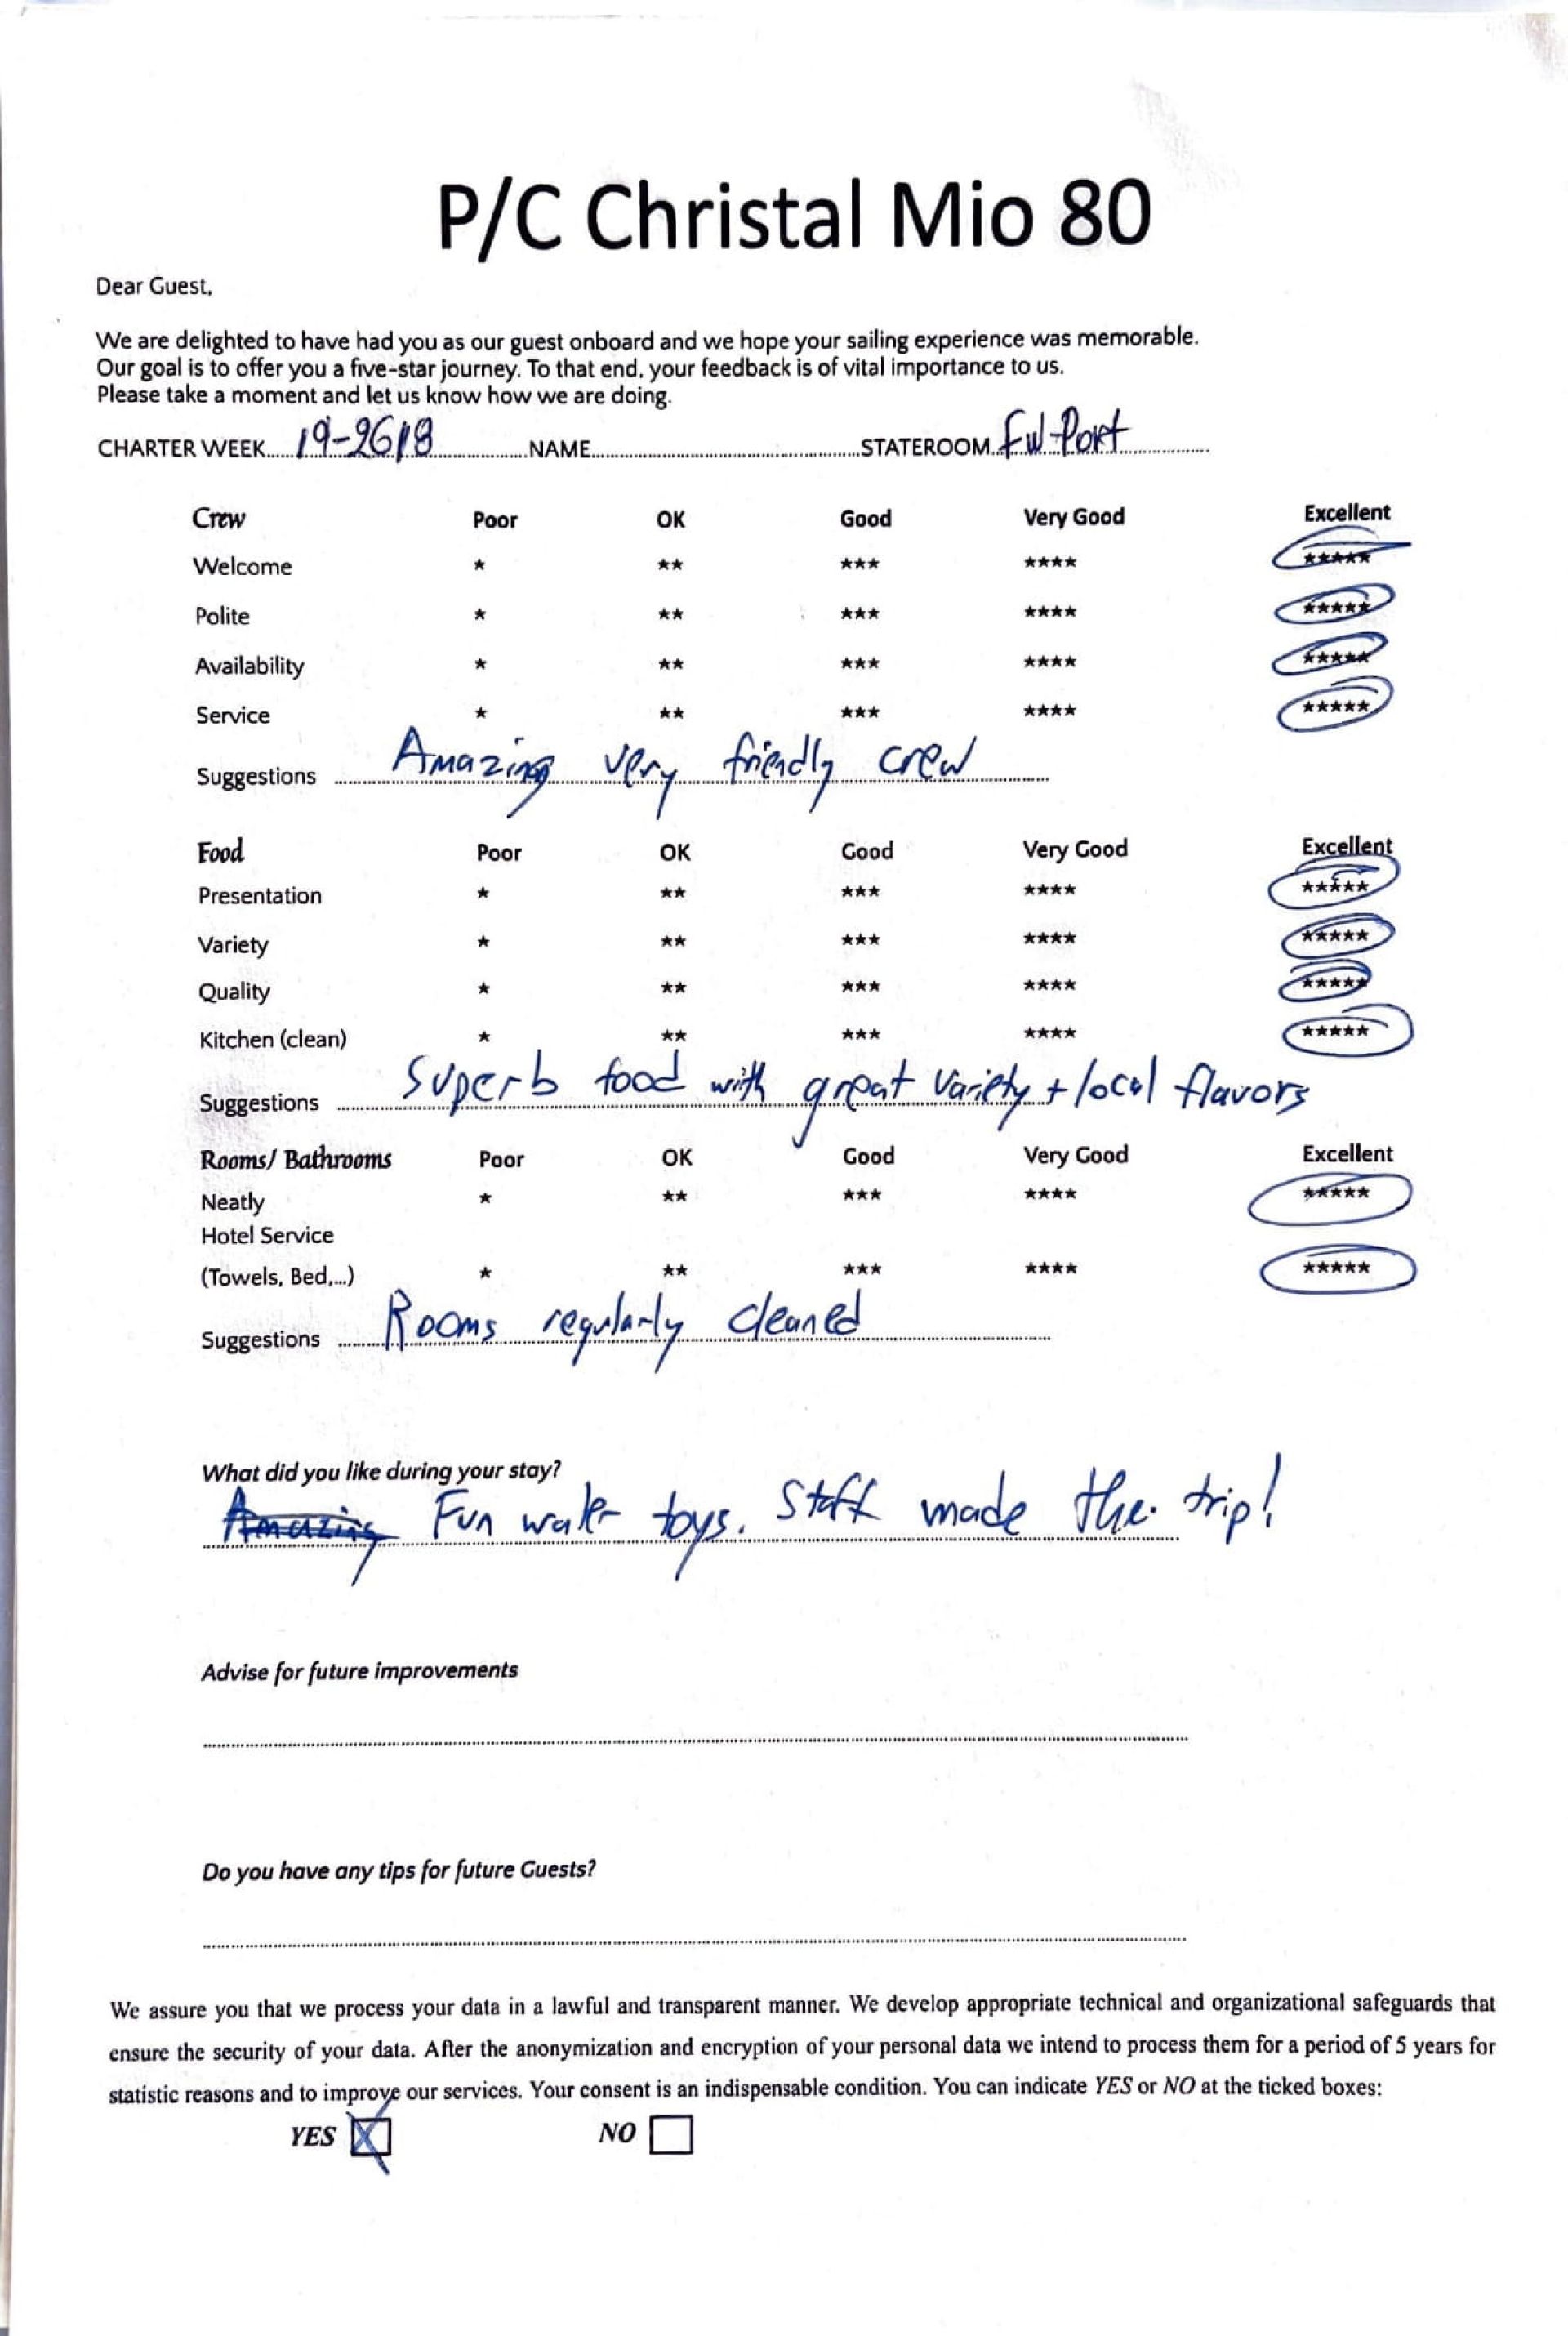 P/C Christal Mio 80
Dear Guest,
We are delighted to have had you as our guest onboard and we hope your sailing experience was memorable.
Our goal is to offer you a five-star journey. To that end, your feedback is of vital importance to us.
Please take a moment and let us know how we are doing.
CHARTER WEEK 19-26/8 NAME STATEROOM Fw-Port
Crew Poor OK Good Very Good Excellent
Welcome * ** *** **** *****
Polite * ** *** **** *****
Availability * ** *** **** *****
Service * ** *** **** *****
Suggestions Amazing very friendly crew
Food Poor OK Good Very Good Excellent
Presentation * ** *** **** *****
Variety * ** *** **** *****
Quality * ** *** **** *****
Kitchen (clean) * ** *** **** *****
Suggestions Superb food with great variety + local flavors
Rooms/ Bathrooms Poor OK Good Very Good Excellent
Neatly * ** *** **** *****
Hotel Service
(Towels, Bed,...) * ** *** **** *****
Suggestions Rooms regularly cleaned
What did you like during your stay?
Amazing Fun water toys. Staff made the trip!
Advise for future improvements
Do you have any tips for future Guests?
We assure you that we process your data in a lawful and transparent manner. We develop appropriate technical and organizational safeguards that
ensure the security of your data. After the anonymization and encryption of your personal data we intend to process them for a period of 5 years for
statistic reasons and to improve our services. Your consent is an indispensable condition. You can indicate YES or NO at the ticked boxes:
YES X NO